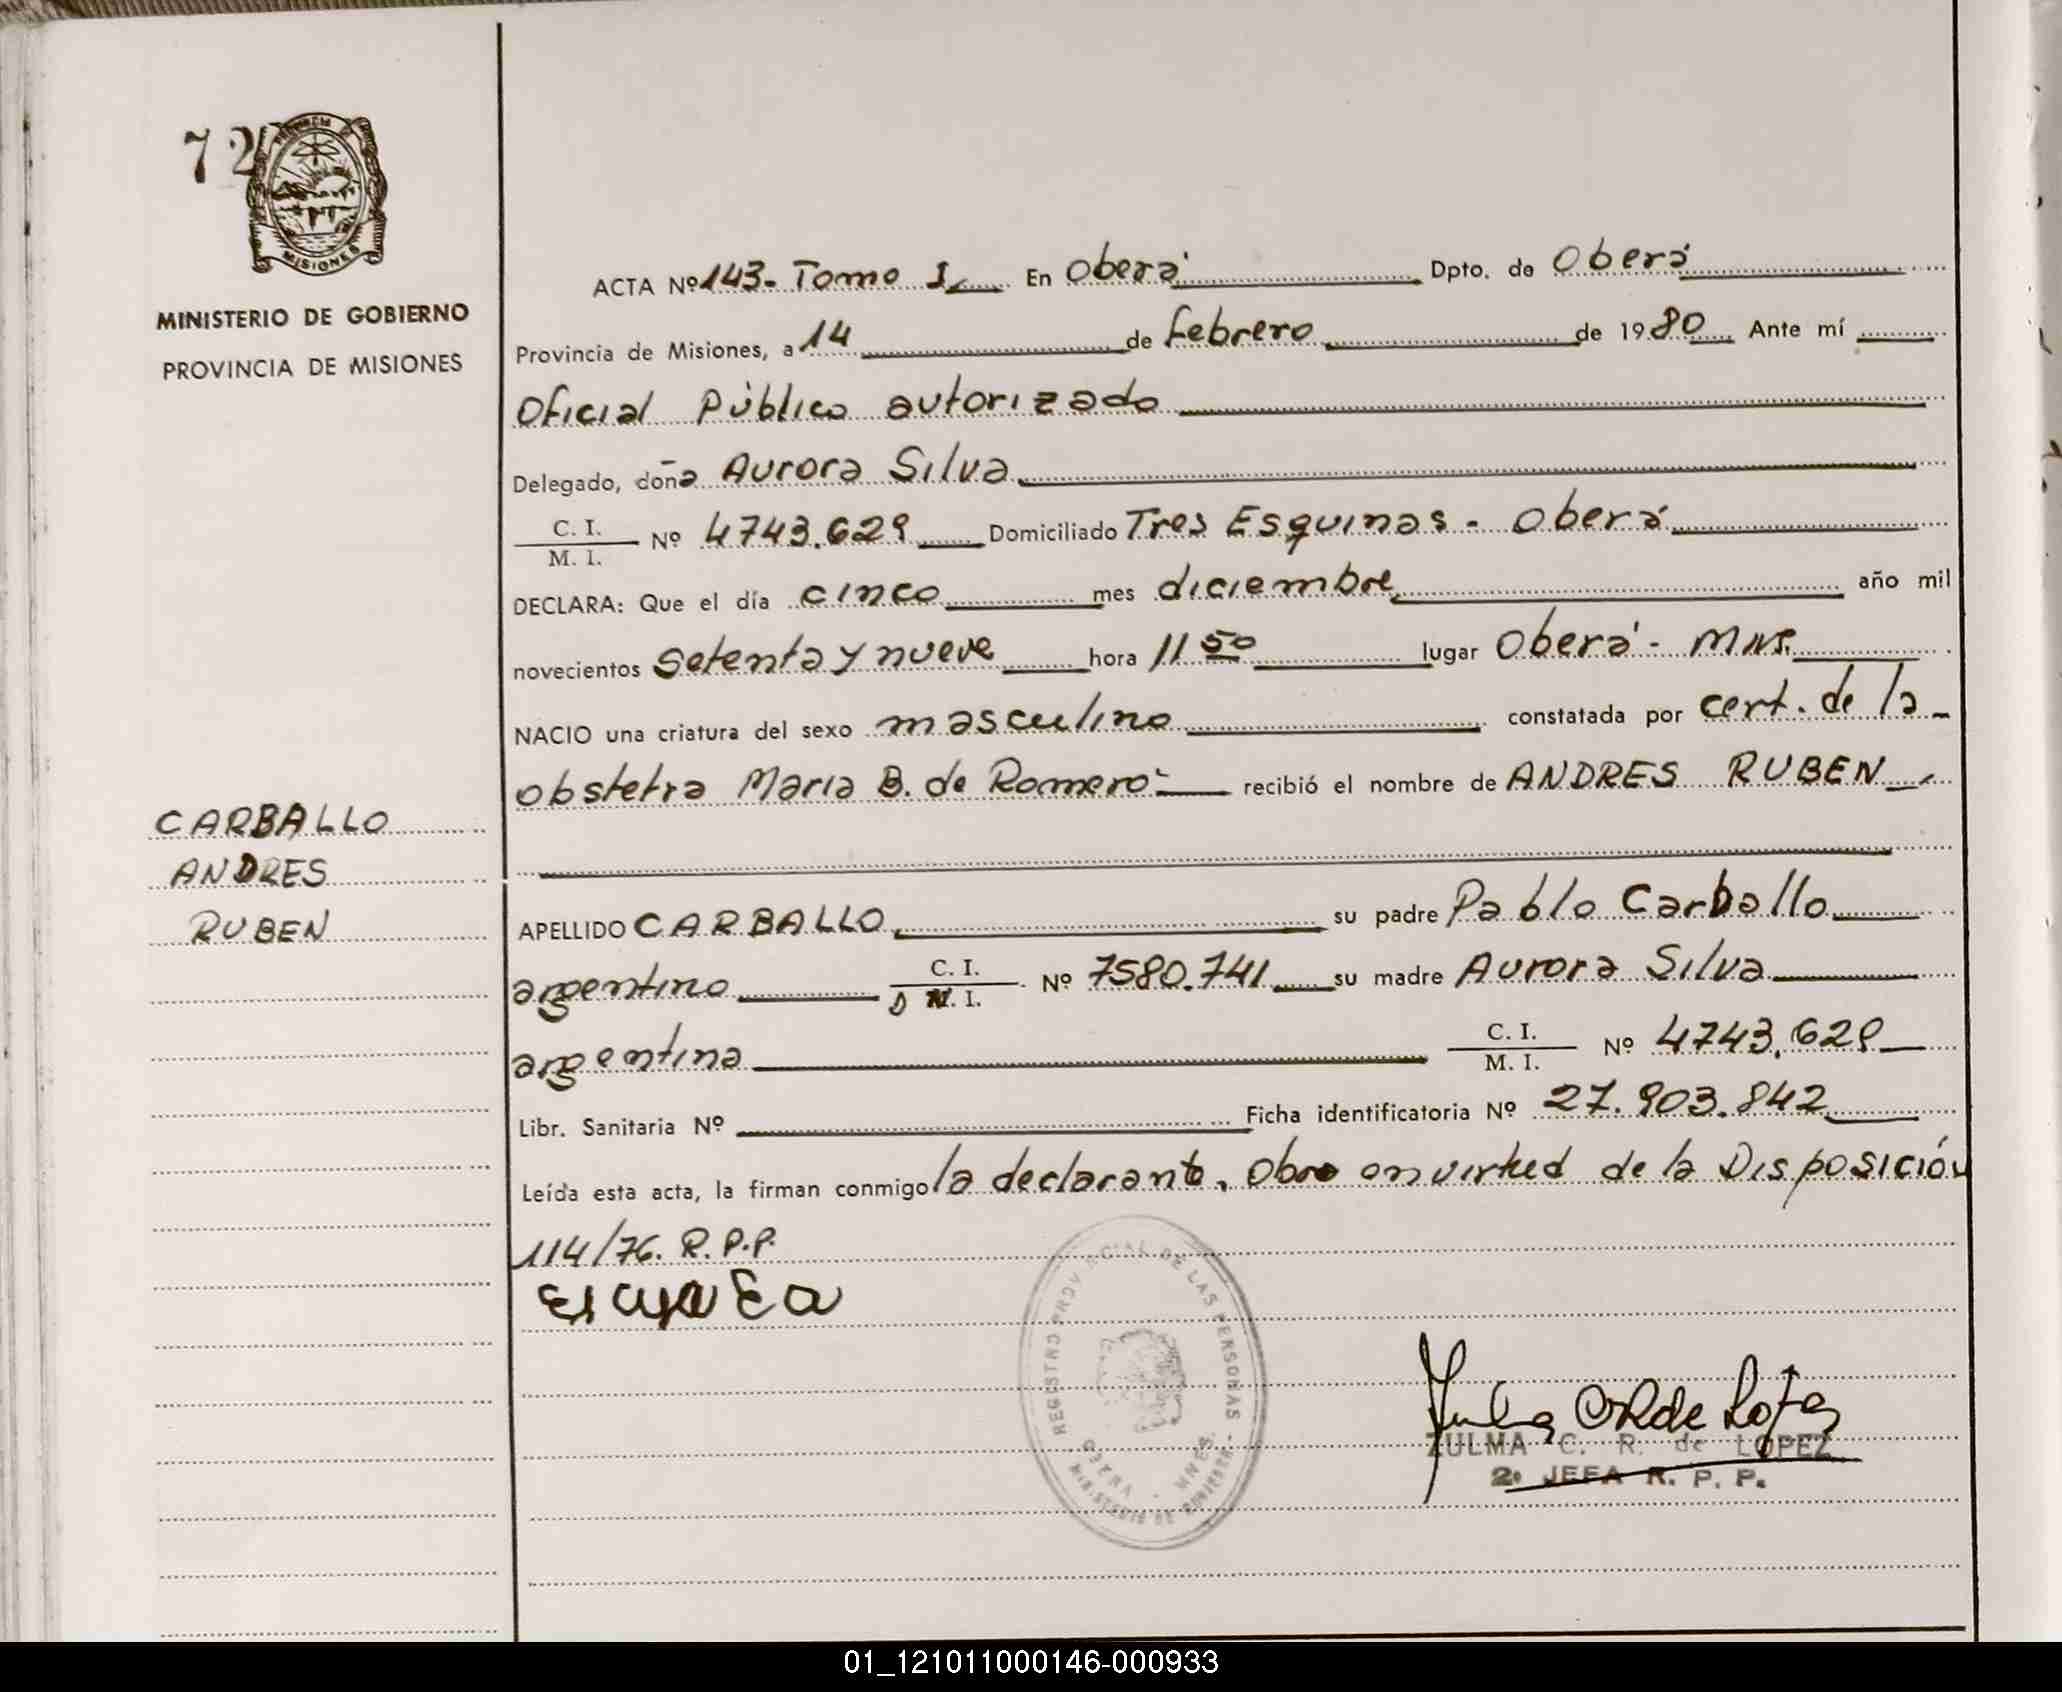 72
PROVINCIA DE
MISIONES
MINISTERIO DE GOBIERNO
PROVINCIA DE MISIONES
CARBALLO
ANDRES
RUBEN
ACTA Nº 143. Tomo I En Oberá Dpto. de Oberá
Provincia de Misiones, a 14 de febrero de 1980 Ante mí
Oficial Público autorizado
Delegado, doña Aurora Silva
C. I.
M. I. Nº 4743.629 Domiciliado Tres Esquinas - Oberá
DECLARA: Que el día cinco mes diciembre año mil
novecientos setenta y nueve hora 11 50 lugar Oberá - Mns.
NACIO una criatura del sexo masculino constatada por cert. de la
obstetra Maria B. de Romero - recibió el nombre de ANDRES RUBEN
APELLIDO CARBALLO su padre Pablo Carballo
argentino C. I.
D M. I. Nº 7580.741 su madre Aurora Silva
argentina C. I.
M. I. Nº 4743.629
Libr. Sanitaria Nº Ficha identificatoria Nº 27.903.842
Leída esta acta, la firman conmigo la declarante. Obro en virtud de la Disposición
114/76. R.P.P.
REGISTRO PROVINCIAL DE LAS PERSONAS
OBERA - MNES.
MINISTERIO DE GOBIERNO
ZULMA C. R. de LOPEZ
2º JEFA R. P. P.
01_121011000146-000933